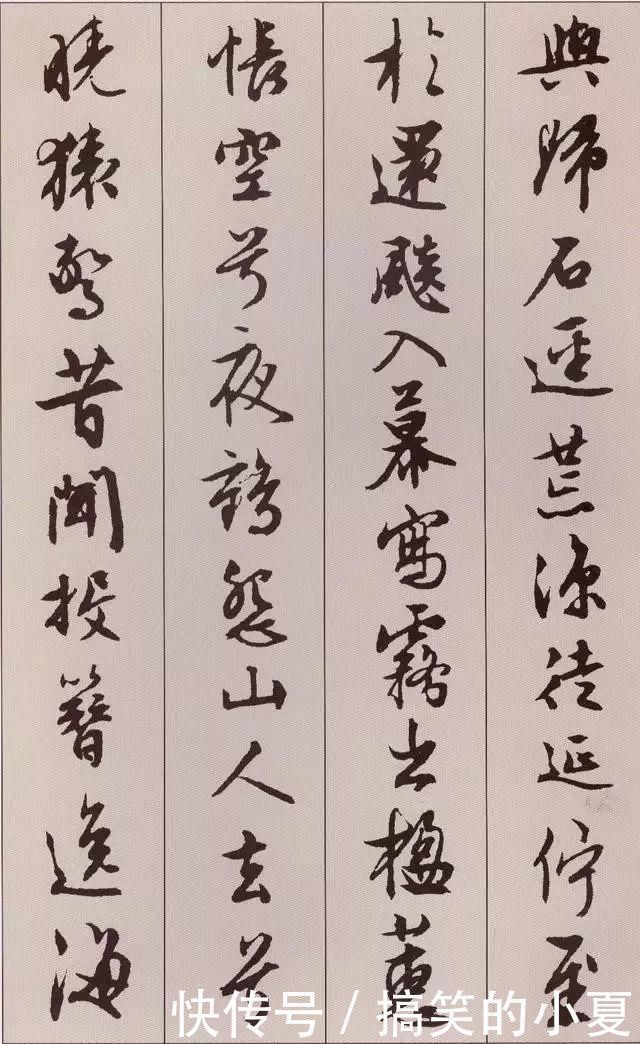 與歸石逕荒涼徒延佇至
於還飈入幕寫霧出楹蕙
帳空兮夜鶴怨山人去兮
曉猿驚昔聞投簪逸海
快传号/搞笑的小夏